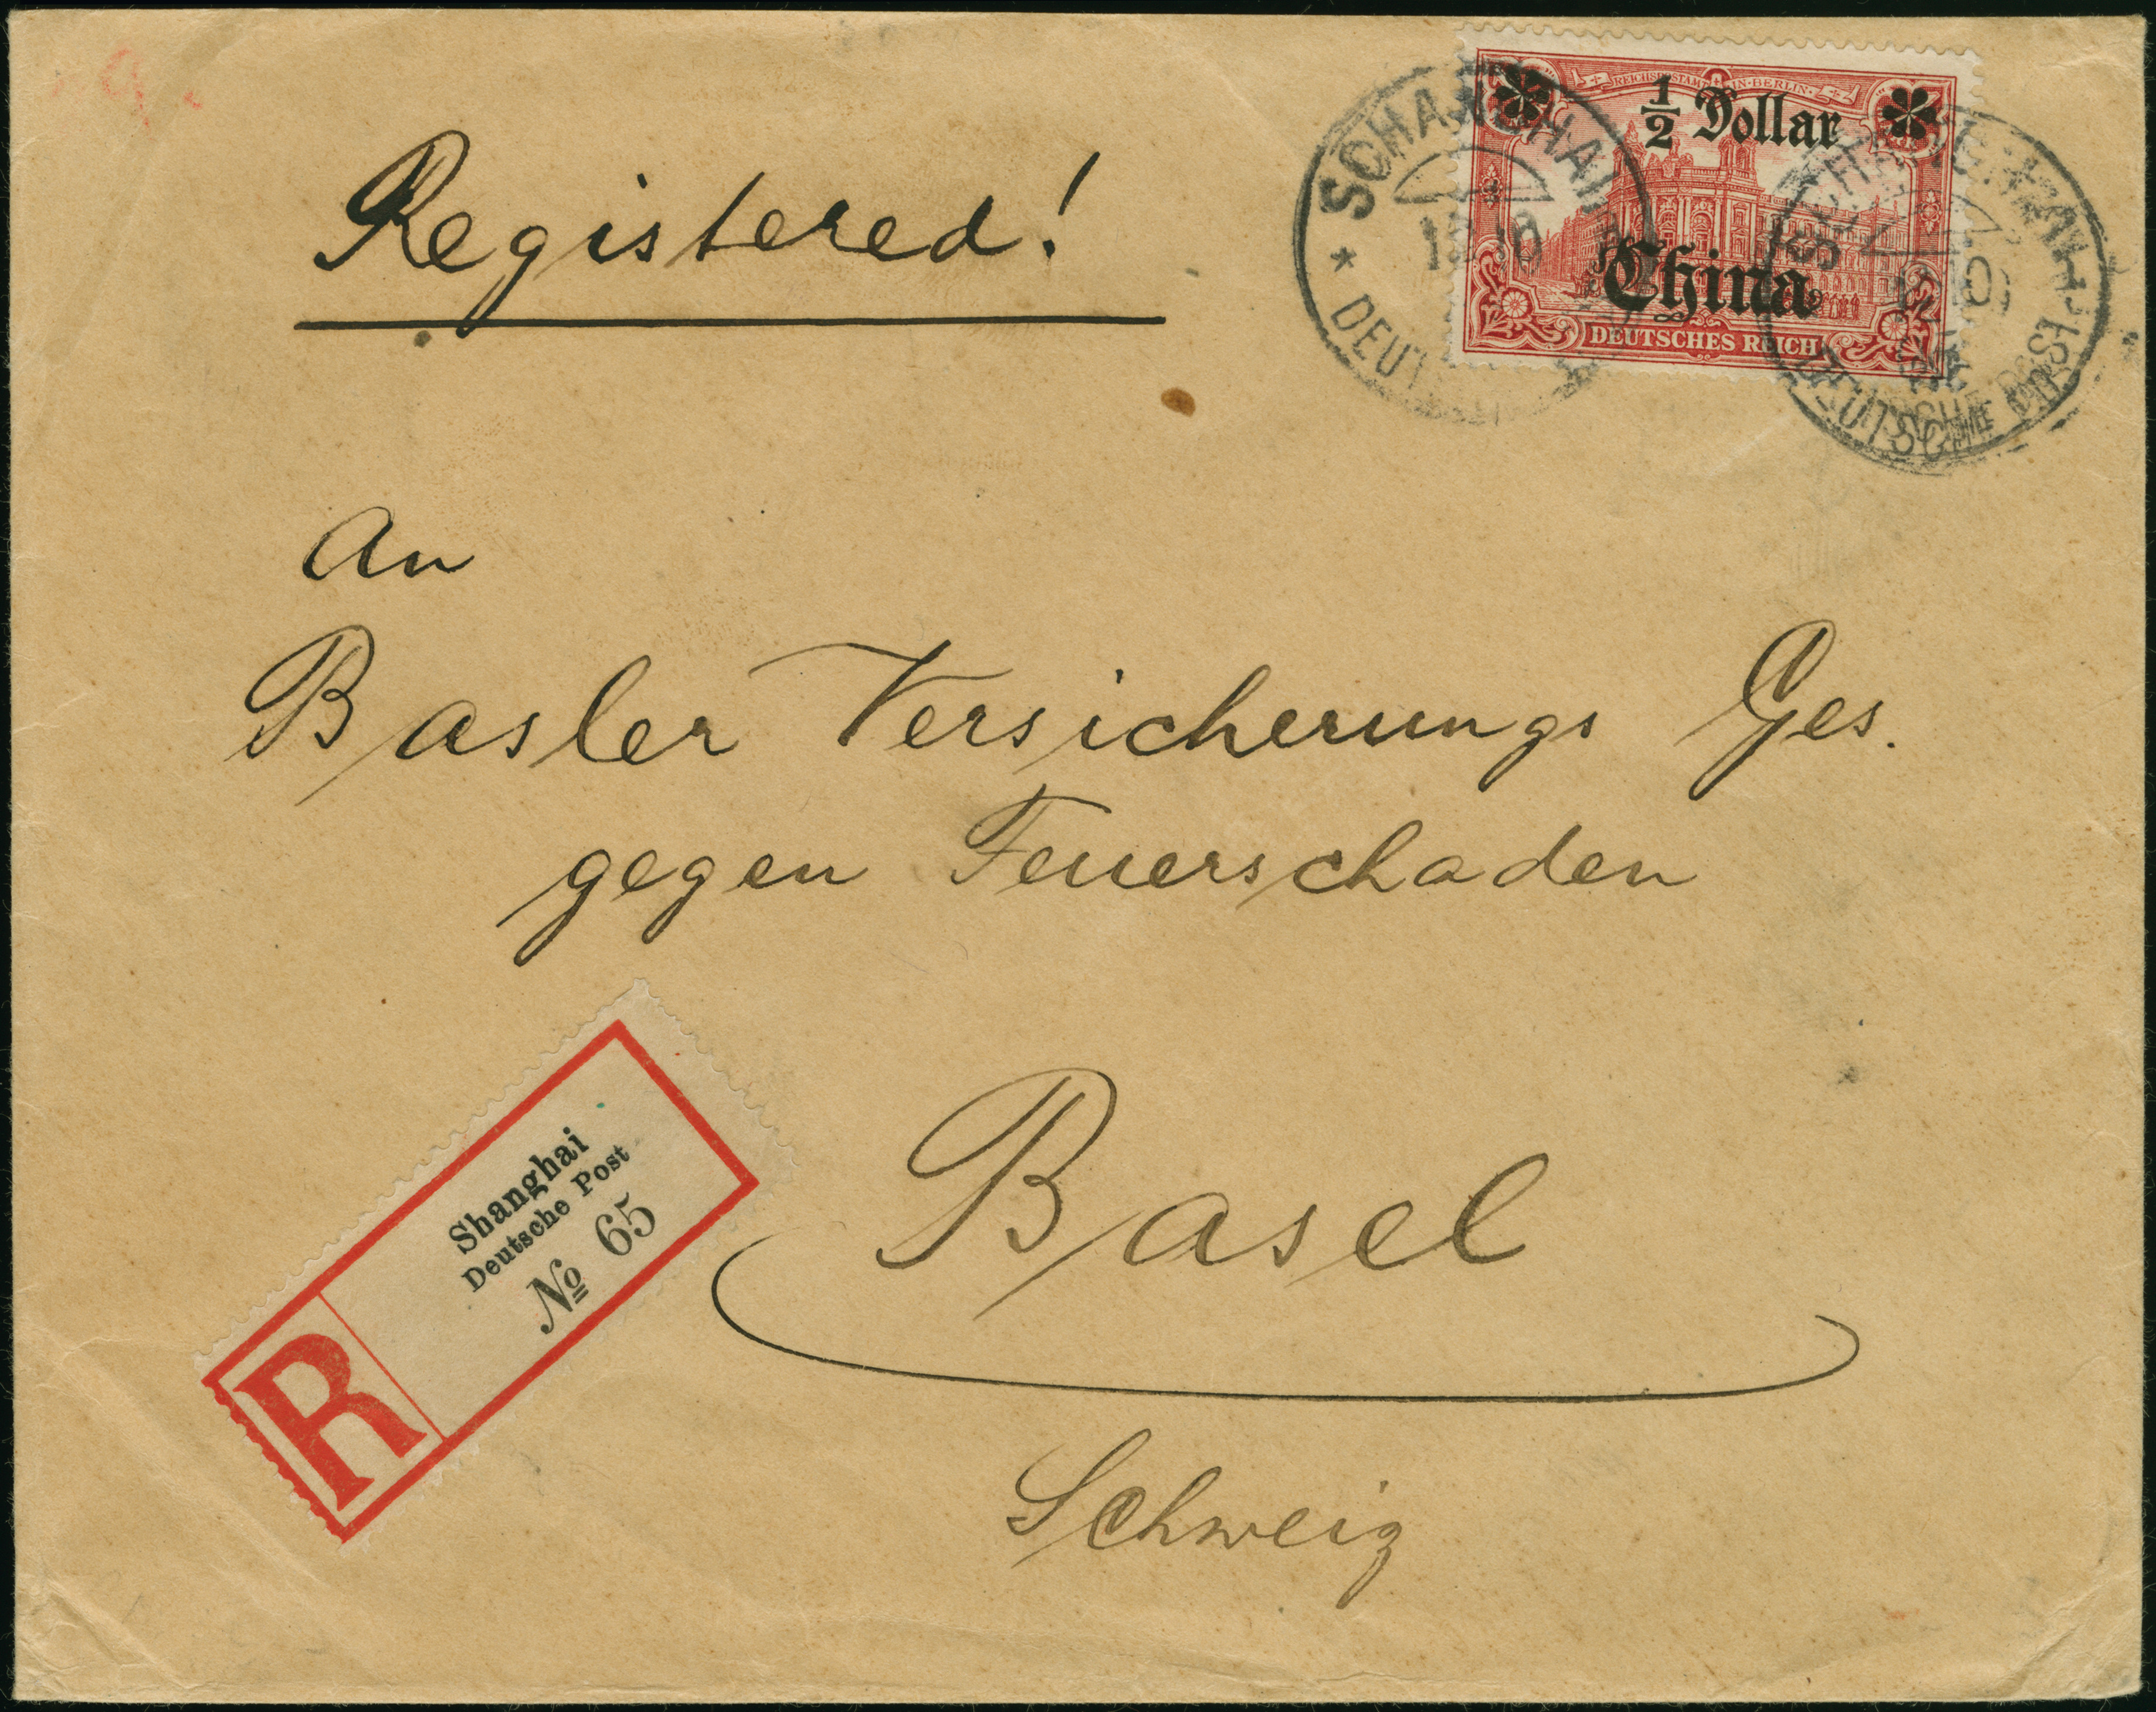 Registered!
REICHSPOSTAMT IN BERLIN
1/2 Dollar
China
DEUTSCHES REICH
SCHANGHAI
* DEUTSCHE POST
An
Basler Versicherungs Ges.
gegen Feuerschaden
Basel
Schweiz
R
Shanghai
Deutsche Post
№ 65